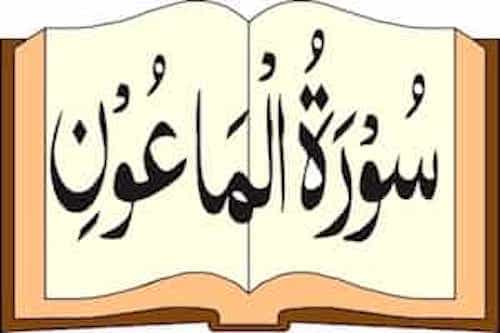 سُوْرَةُ الْمَاعُوْنِ